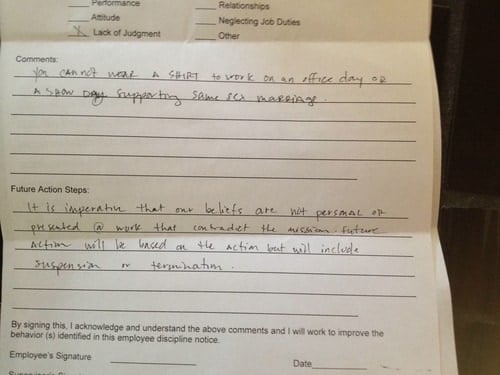 ___ Performance ___ Relationships
___ Attitude ___ Neglecting Job Duties
X Lack of Judgment ___ Other
Comments:
You cannot wear a shirt to work on an office day or
a show day supporting same sex marriage.
Future Action Steps:
It is imperative that our beliefs are not personal or
presented @ work that contradict the mission. Future
action will be based on the action but will include
suspension or termination.
By signing this, I acknowledge and understand the above comments and I will work to improve the
behavior (s) identified in this employee discipline notice.
Employee's Signature ___ Date___